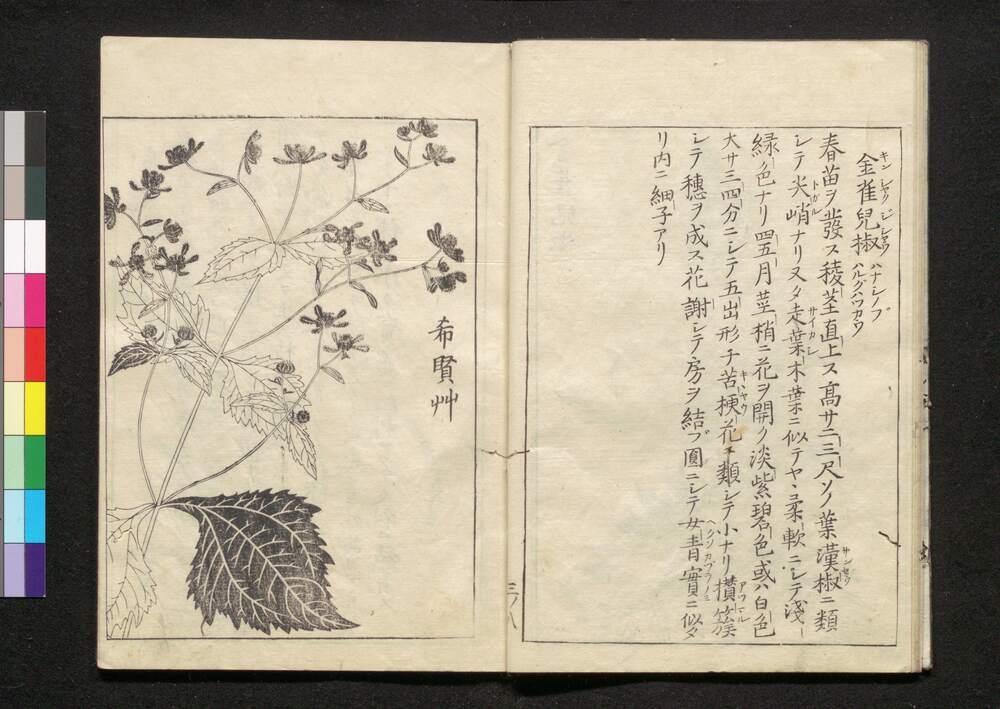 金雀兒椒 ハナシノブ ハルグハワカウ
春苗ヲ發ス稜莖直上ス高サ二三尺ソノ葉漢椒ニ類
シテ尖峭ナリ又タ走葉木葉ニ似テヤヽ柔軟ニシテ淺
緑色ナリ四五月莖梢ニ花ヲ開ク淡紫碧色或ハ白色
大サ三四分ニシテ五出形チ苦梗花ニ類シテ小ナリ攅簇
シテ穗ヲ成ス花謝シテ房ヲ結ブ圓ニシテ女青實ニ似タ
リ内ニ細子アリ
希賢艸